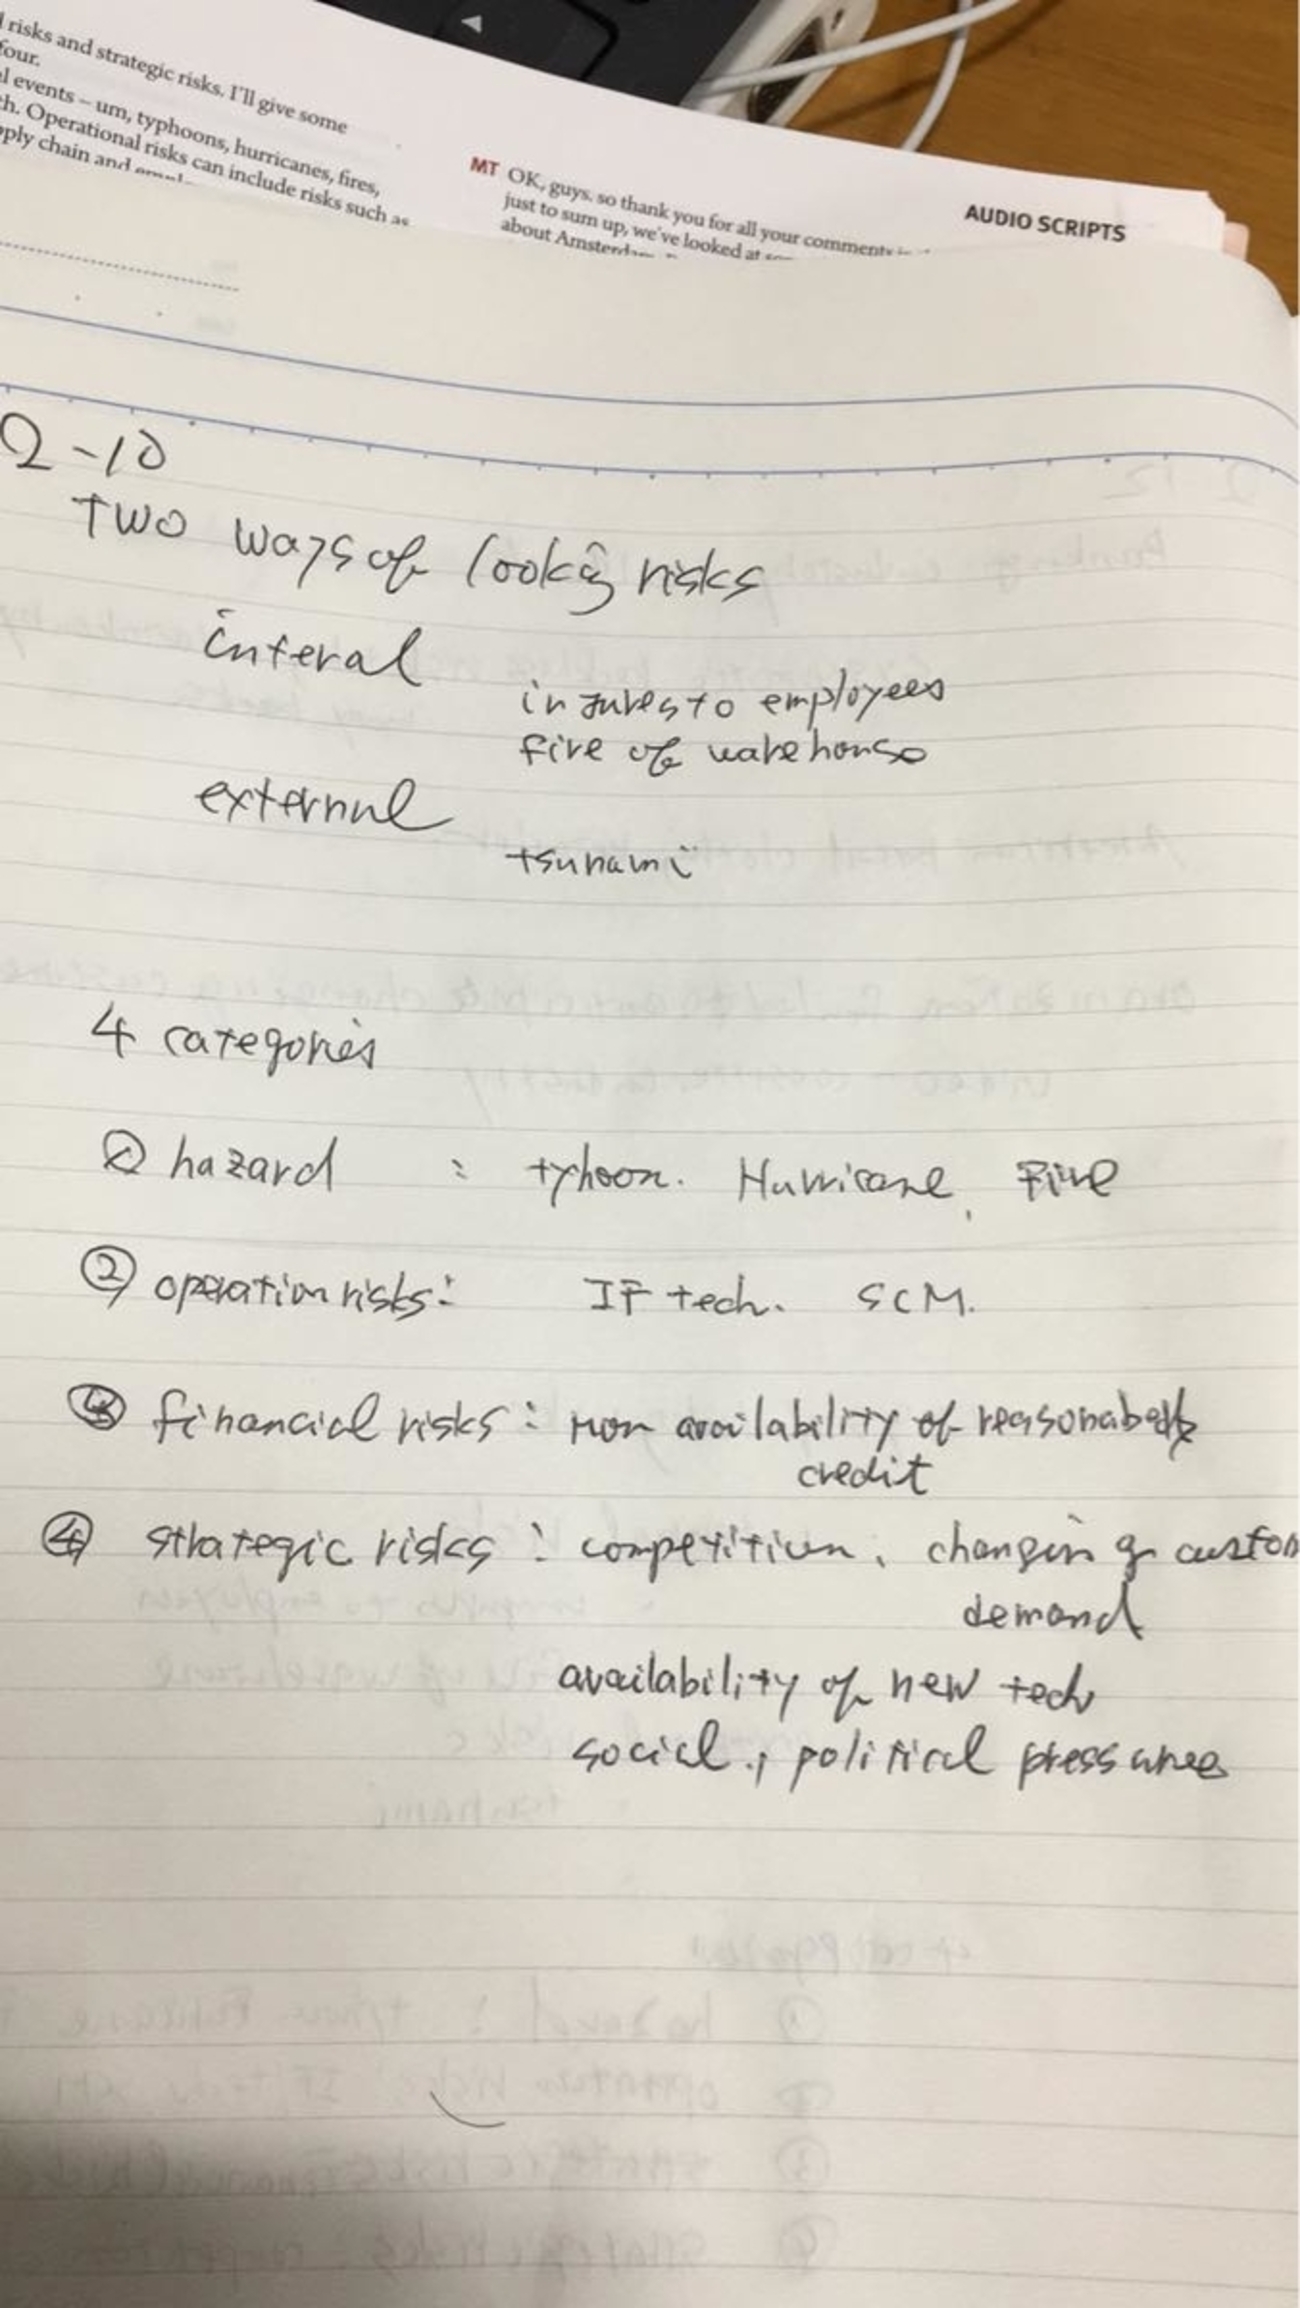 l risks and strategic risks. I'll give some
four.
al events – um, typhoons, hurricanes, fires,
th. Operational risks can include risks such as
pply chain and
MT OK, guys. so thank you for all your comments
just to sum up, we've looked at
about Amsterdam
AUDIO SCRIPTS
2-10
Two ways of risks
interal
injures to employees
fire of warehouse
external
tsunami
4 categories
① hazard : tyhoon. Hurricane, Fire
② operation risks: IF tech. SCM.
③ financial risks: non availability of
credit
④ strategic risks: competition, changing custom
demand
availability of new tech
social, political pressures